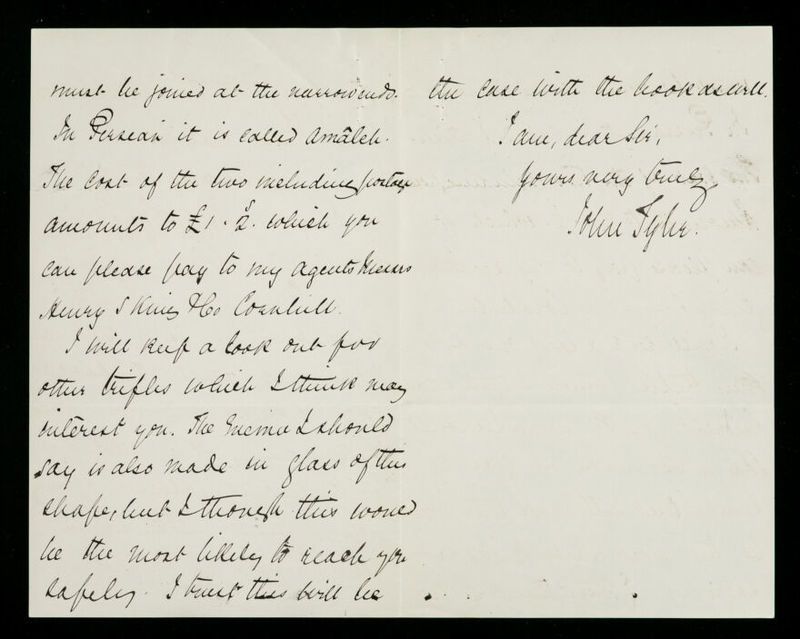 must be joined at the narrow ends.
In Persean it is called Amâleh.
The cost of the two including postage
amounts to £1. 2. which you
can please pay to my agents Messrs
Henry S King & Co Cornhill.
I will keep a look out for
other trifles which I think may
interest you. The Enema I should
say is also made in glass of this
shape, but I though this would
be the most likely to reach you
safely. I trust this will be
the case with the book as well.
I am, dear Sir,
yours very truly,
John Tyler.